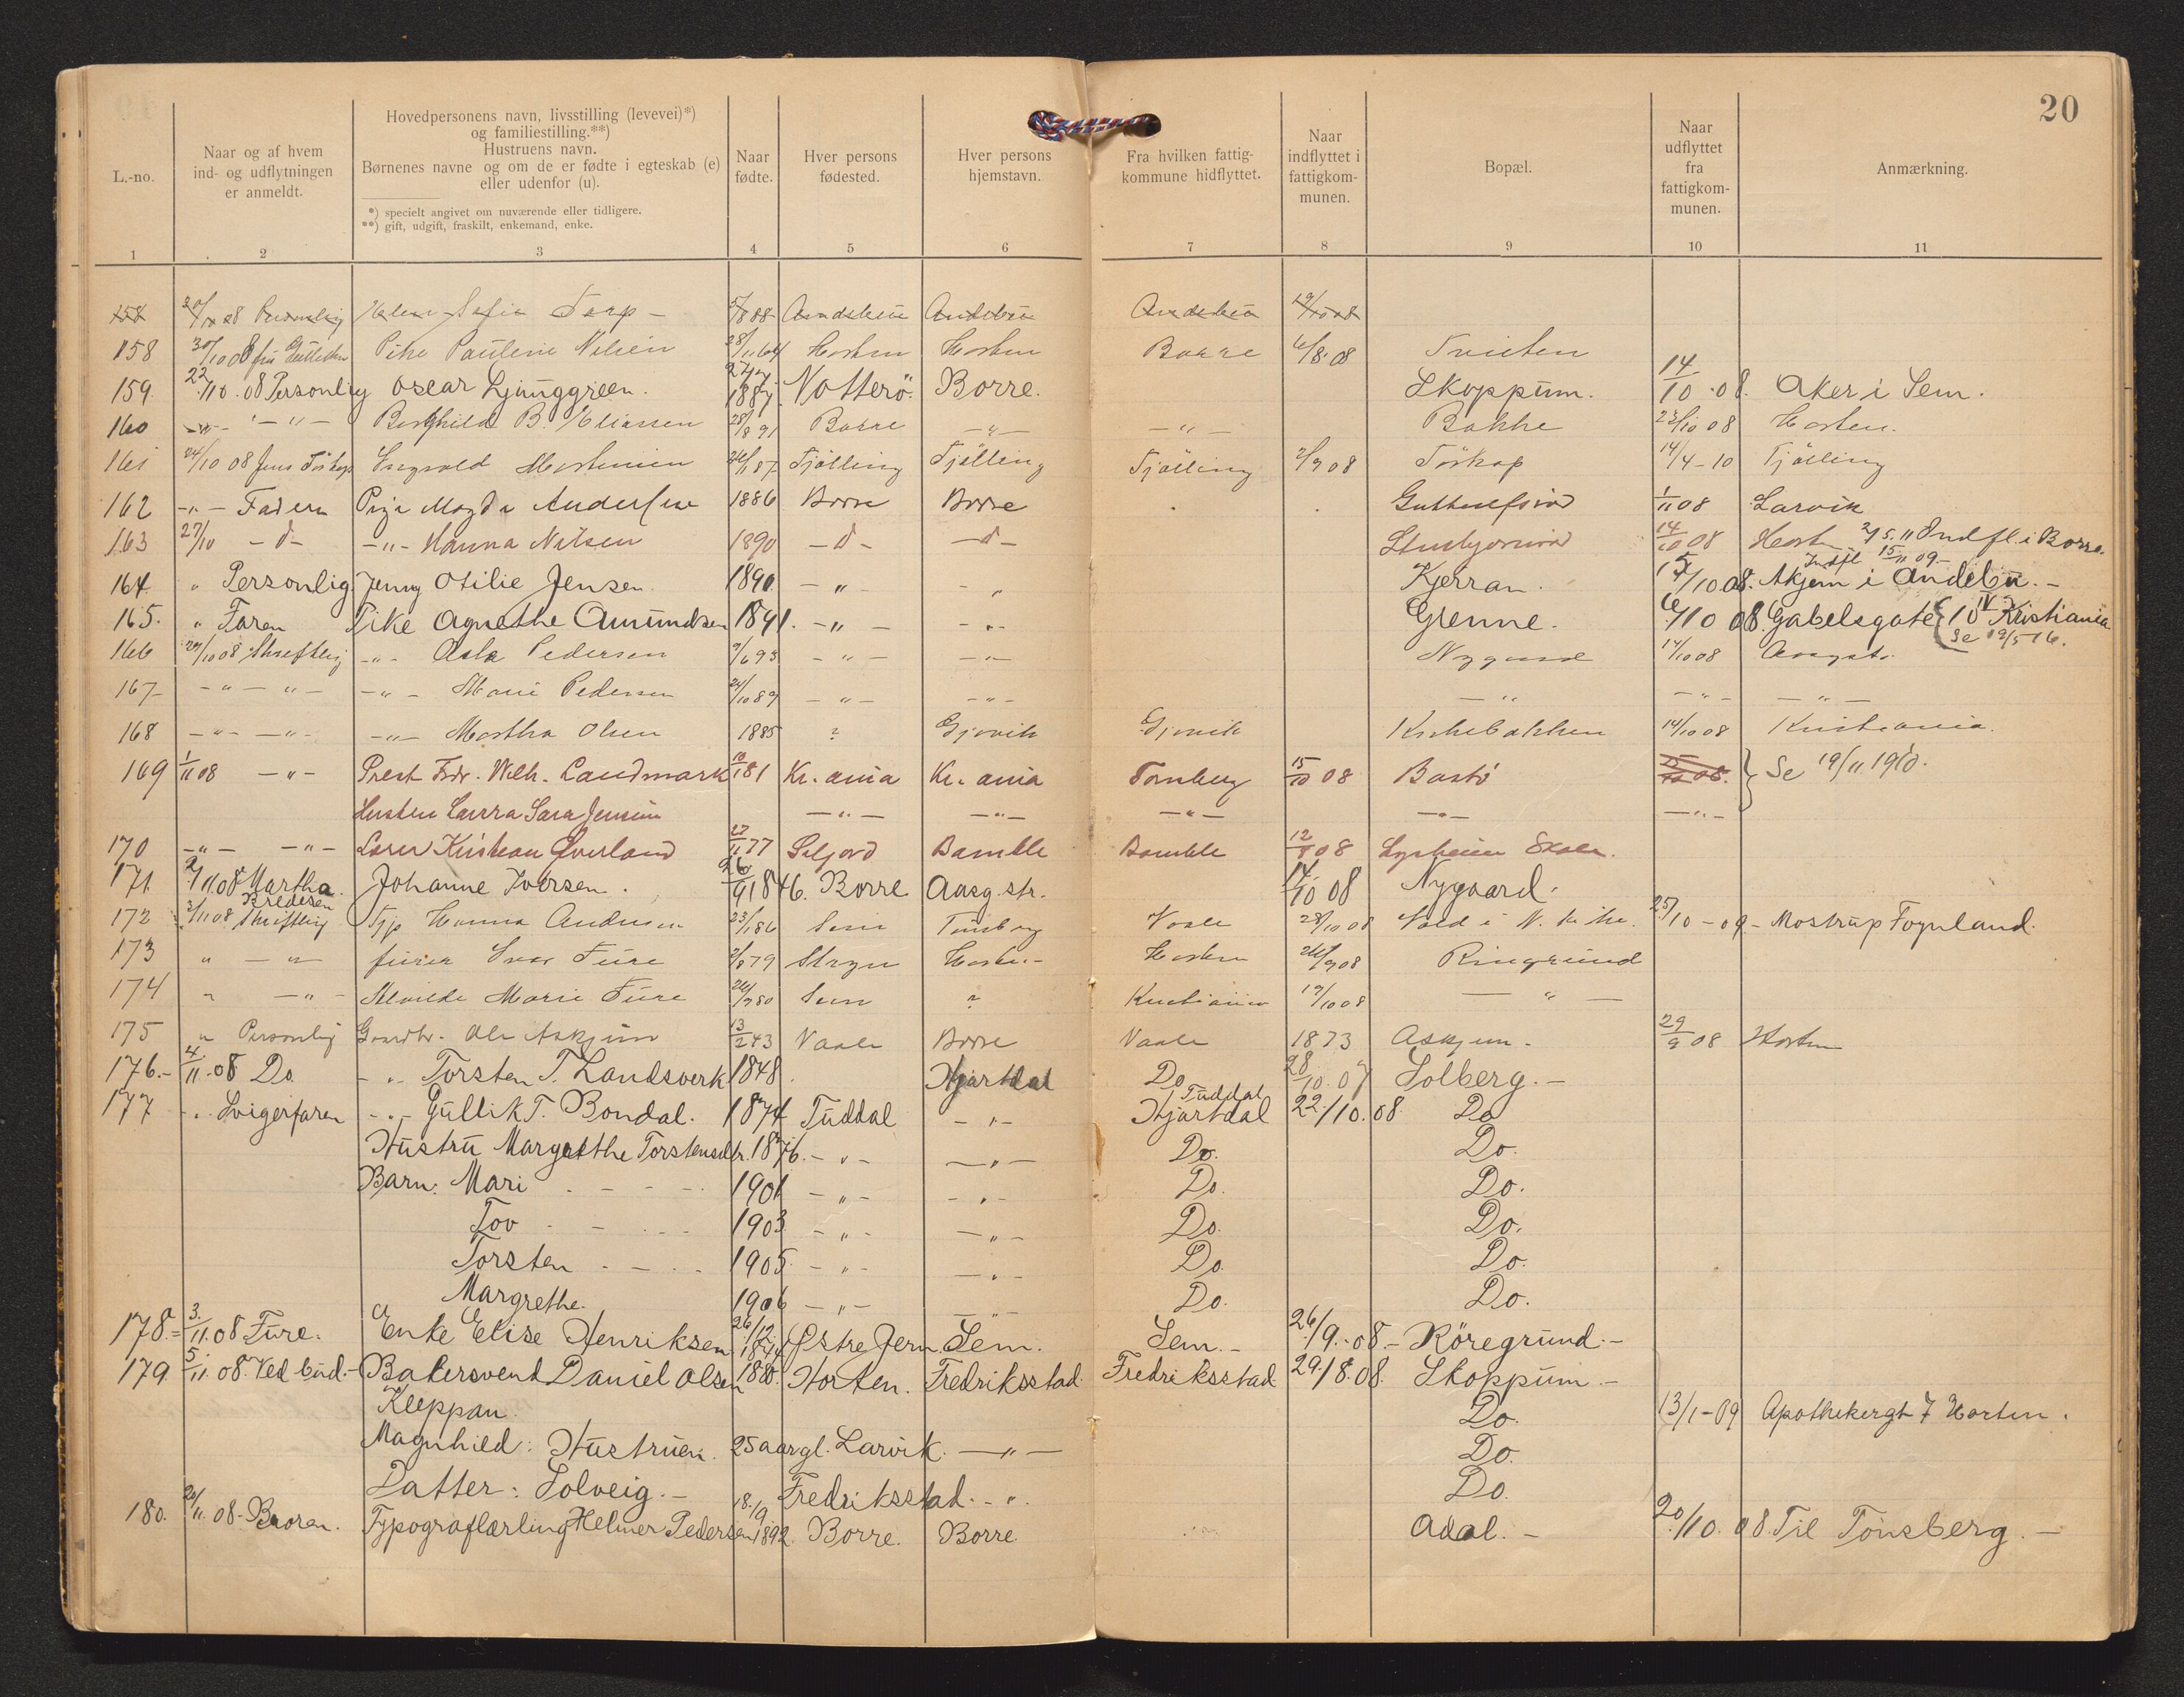 20
L.-no.
Naar og af hvem
ind- og udflytningen
er anmeldt.
Hovedpersonens navn, livsstilling (levevei)*)
og familiestilling.**)
Hustruens navn.
Børnenes navne og om de er fødte i egteskab (e)
eller udenfor (u).
*) specielt angivet om nuværende eller tidligere.
**) gift, udgift, fraskilt, enkemand, enke.
Naar
fødte.
Hver persons
fødested.
Hver persons
hjemstavn.
Fra hvilken fattig-
kommune hidflyttet.
Naar
indflyttet i
fattigkom-
munen.
Bopæl.
Naar
udflyttet
fra
fattigkom-
munen.
Anmærkning.
1 2 3 4 5 6 7 8 9 10 11
158 Sofie
158 30/10 08 Pike Pauline Nilsen 28/11 64 Horten Horten Borre 6/8.08 Tveiten
159. 22/10.08 Personlig Oscar Ljunggreen. 1887. Nøtterö. Borre. Skoppum. 14/10.08. Aker i Sem.
160 -"- -"- Borghild B. Eliassen 28/8 91 Borre -"- -"- Bakke 23/10 08 Horten.
161 24/10 08 Jens Mortensen 87 Tjölling Tjölling Tjölling 2/9 08 14/4-10 Tjölling
162 -"- Faderen Pige Magda Andersen 1886 Borre Borre 1/11 08 Larvik
163 27/10 -d- -"- Hanna Nilsen 1890 -d- -d- 14/10 08 Horten Indfl. i Borre.
Indfl 15/11 09-
164. " Personlig. Jenny Otilie Jensen. 1890. -"- " Kjerran. 17/10 08. Askjem i Andebu.-
165. " Faren Pike Agnethe Amundsen 1891. -"- -"- Grenne. 6/10 08. Gabelsgate 10 IV Kristiania
166 24/10 08 Skriftlig -"- Asta Pedersen 9/6 93 -"- -"- Nygaard 14/10 08 Aasgst.
Se 19/5 16.
167 -"- -"- -"- Marie Pedersen 24/10 89 -"- -"- -"- -"- -"-
168 -"- -"- -"- Martha Olsen 1885 ? Gjøvik Gjøvik Kirkebakken 14/10 08 Kristiania.
169 1/11 08 -"- Prest Fredr. Wilh. Landmark 10/1 81 Kr.ania Kr.ania Tønsberg 15/10 08 Bastö Se 19/11 1910.
Hustru Laura Sara Jensine -"- -"- -"- -"- -"-
170 -"- -"- Lærer Kristian Qverland 27/11 77 Seljord Bamble Bamble 12/8 08 Lysheim Skole.
171. 2/11.08 Martha Johanne Iversen. 26/9 1846. Borre Aasg.str. 14/10 08 Nygaard.
Bredesen
172 3/11 08 Skriftlig Hanna Andersen 23/1 86 Sem Tønsberg Vaale 28/10 08 Vold i N. 25/10-09- Mostrup Foynland.
173 " -"- Ivar Fure 2/8 79 Stryn Horten- Horten 26/9 08 Ringrund
174 " -"- Alvilde Marie Fure 80 Sem " Kristiania 19/10 08 -"-
175 " Personlig Gaardbr. Ole Askjem 13/2 43 Vaale Borre Vaale 1873 Askjem. 29/9 08 Horten
176.- 4/11.08 Do. -"- Torsten T. Landsverk 1848. Hjartdal Do 28/10.07 Solberg.-
177 -"- Svigerfaren -"- Gullik T. Bondal. 1874 Tuddal -"- Tuddal
Hjartdal 22./10.08. Do
Hustru Margrethe Torstensdtr. 1876. -"- -"- Do. Do.
Barn: Mari 1901 -"- -"- Do. Do.
Tov 1903 -"- -"- Do. Do.
Torsten 1905. -"- -"- Do Do.
Margrethe. 1906 -"- -"- Do. Do.
178.- 3./11.08 Fure. Enke Elise Henriksen 26/12 Østre Jern. Sem. Sem.- 26/9.-08.- Röregrund.-
179. 5/11.08. Ved bud.- Bakersvend Daniel Olsen 1880. Horten. Fredriksstad. Fredriksstad 29./8.08. Skoppum.-
Kleppan. Do. 13/1-09 Apothekergt 7 Horten.
Magnhild: Hustruen. 25 aar gl. Larvik. -"- Do.
Datter: Solveig.- Fredriksstad. -"- Do.
180. 20/11.08.- Broren. Typograflærling Helmer Pedersen 18./9 1892. Borre. Borre. Adal.- 20/10.08. Til Tönsberg.-